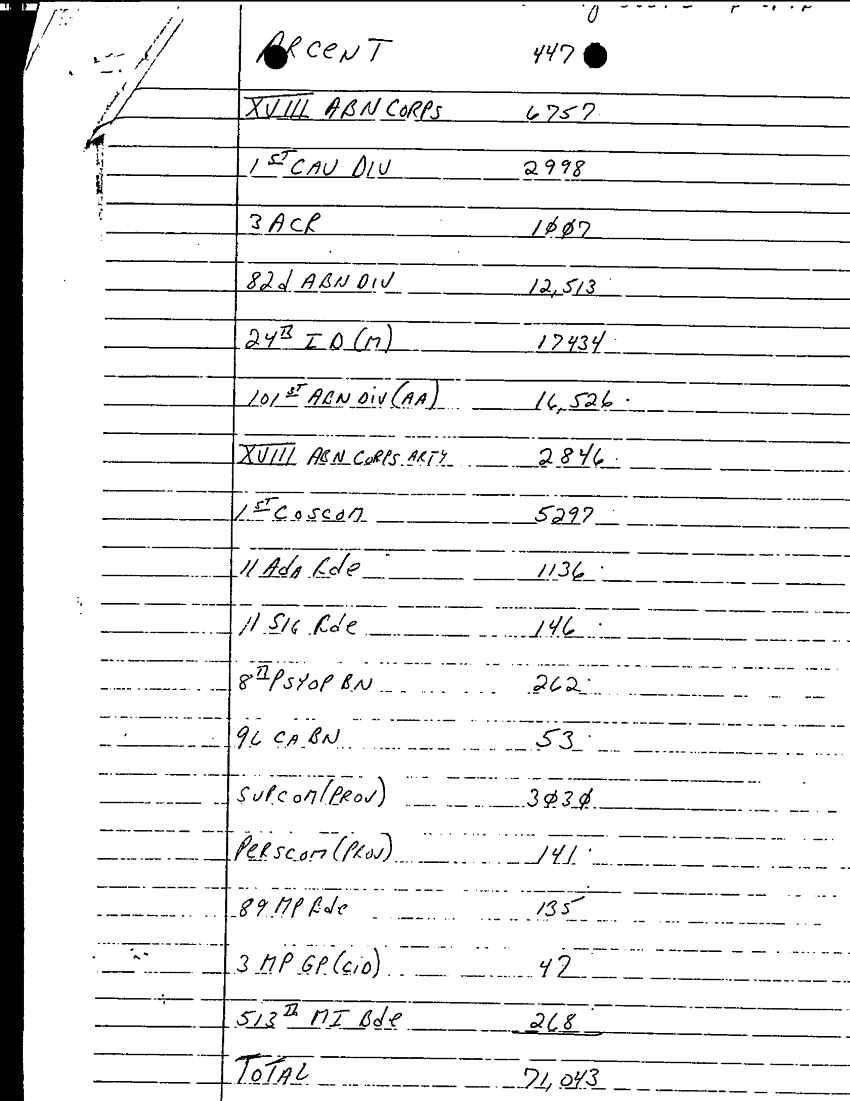 ARCENT 447
XVIII ABN CORPS 6757
1ST CAV DIV 2998
3 ACR 1007
82d ABN DIV 12,513
24TH ID (M) 17434
101ST ABN DIV (AA) 16,526
XVIII ABN CORPS ARTY 2846
1ST COSCOM 5297
11 ADA Bde 1136
11 SIG Bde 146
8TH PSYOP BN 262
96 CA BN 53
SUPCOM (PROV) 3030
PERSCOM (PROV) 141
89 MP Bde 135
3 MP GP (CID) 47
513TH MI Bde 268
TOTAL 71,043